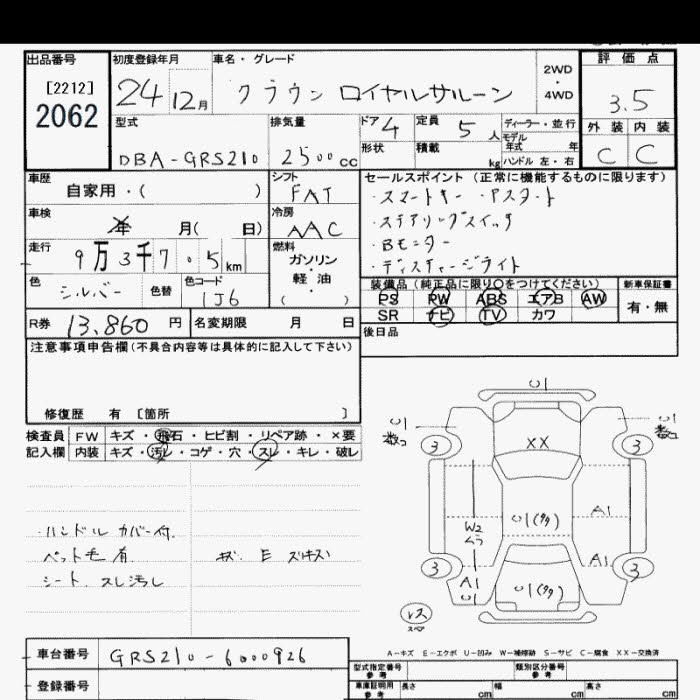 出品番号 初度登録年月 車名・グレード 2WD・4WD 評価点
[2212]
2062
24 12月 クラウン ロイヤルサルーン 3.5
型式 排気量 ドア 4 定員 5人 ディーラー・並行 外装 内装
モデル年式 年
DBA-GRS210 2500cc 形状 積載 kg ハンドル 左・右 C C
車歴 自家用・( ) シフト FAT セールスポイント (正常に機能するものに限ります)
・スマートキー ・Pスタート
車検 年 月( 日) 冷房 AAC ・ステアリングスイッチ
・Bモニター
走行 9万3千7・5km 燃料 ガソリン・軽油・( ) ・ディスチャージライト
色 シルバー 色替 色コード 1J6 装備品 (純正品に限り○をつけてください) 新車保証書
PS PW ABS エアB AW 有・無
SR ナビ TV カワ
R券 13,860円 名変期限 月 日 後日品
注意事項申告欄(不具合内容等は具体的に記入して下さい)
修復歴 有 [箇所 ]
検査員 FW キズ・飛石・ヒビ割・リペア跡・×要
記入欄 内装 キズ・汚レ・コゲ・穴・スレ・キレ・破レ
U1
U1 U1
3 3
XX
・ハンドル カバー付
ペット毛 有
シート スレ汚し
W2 U1 A1
A1
3 3
A1
U1 U1
レス
A-キズ E-エクボ U-凹み W-補修跡 S-サビ C-腐食 XX-交換済
車台番号 GRS210-6000926
登録番号
型式指定番号 参考 類別区分番号 参考
車庫証明用 参考 長さ cm 幅 cm 高さ cm